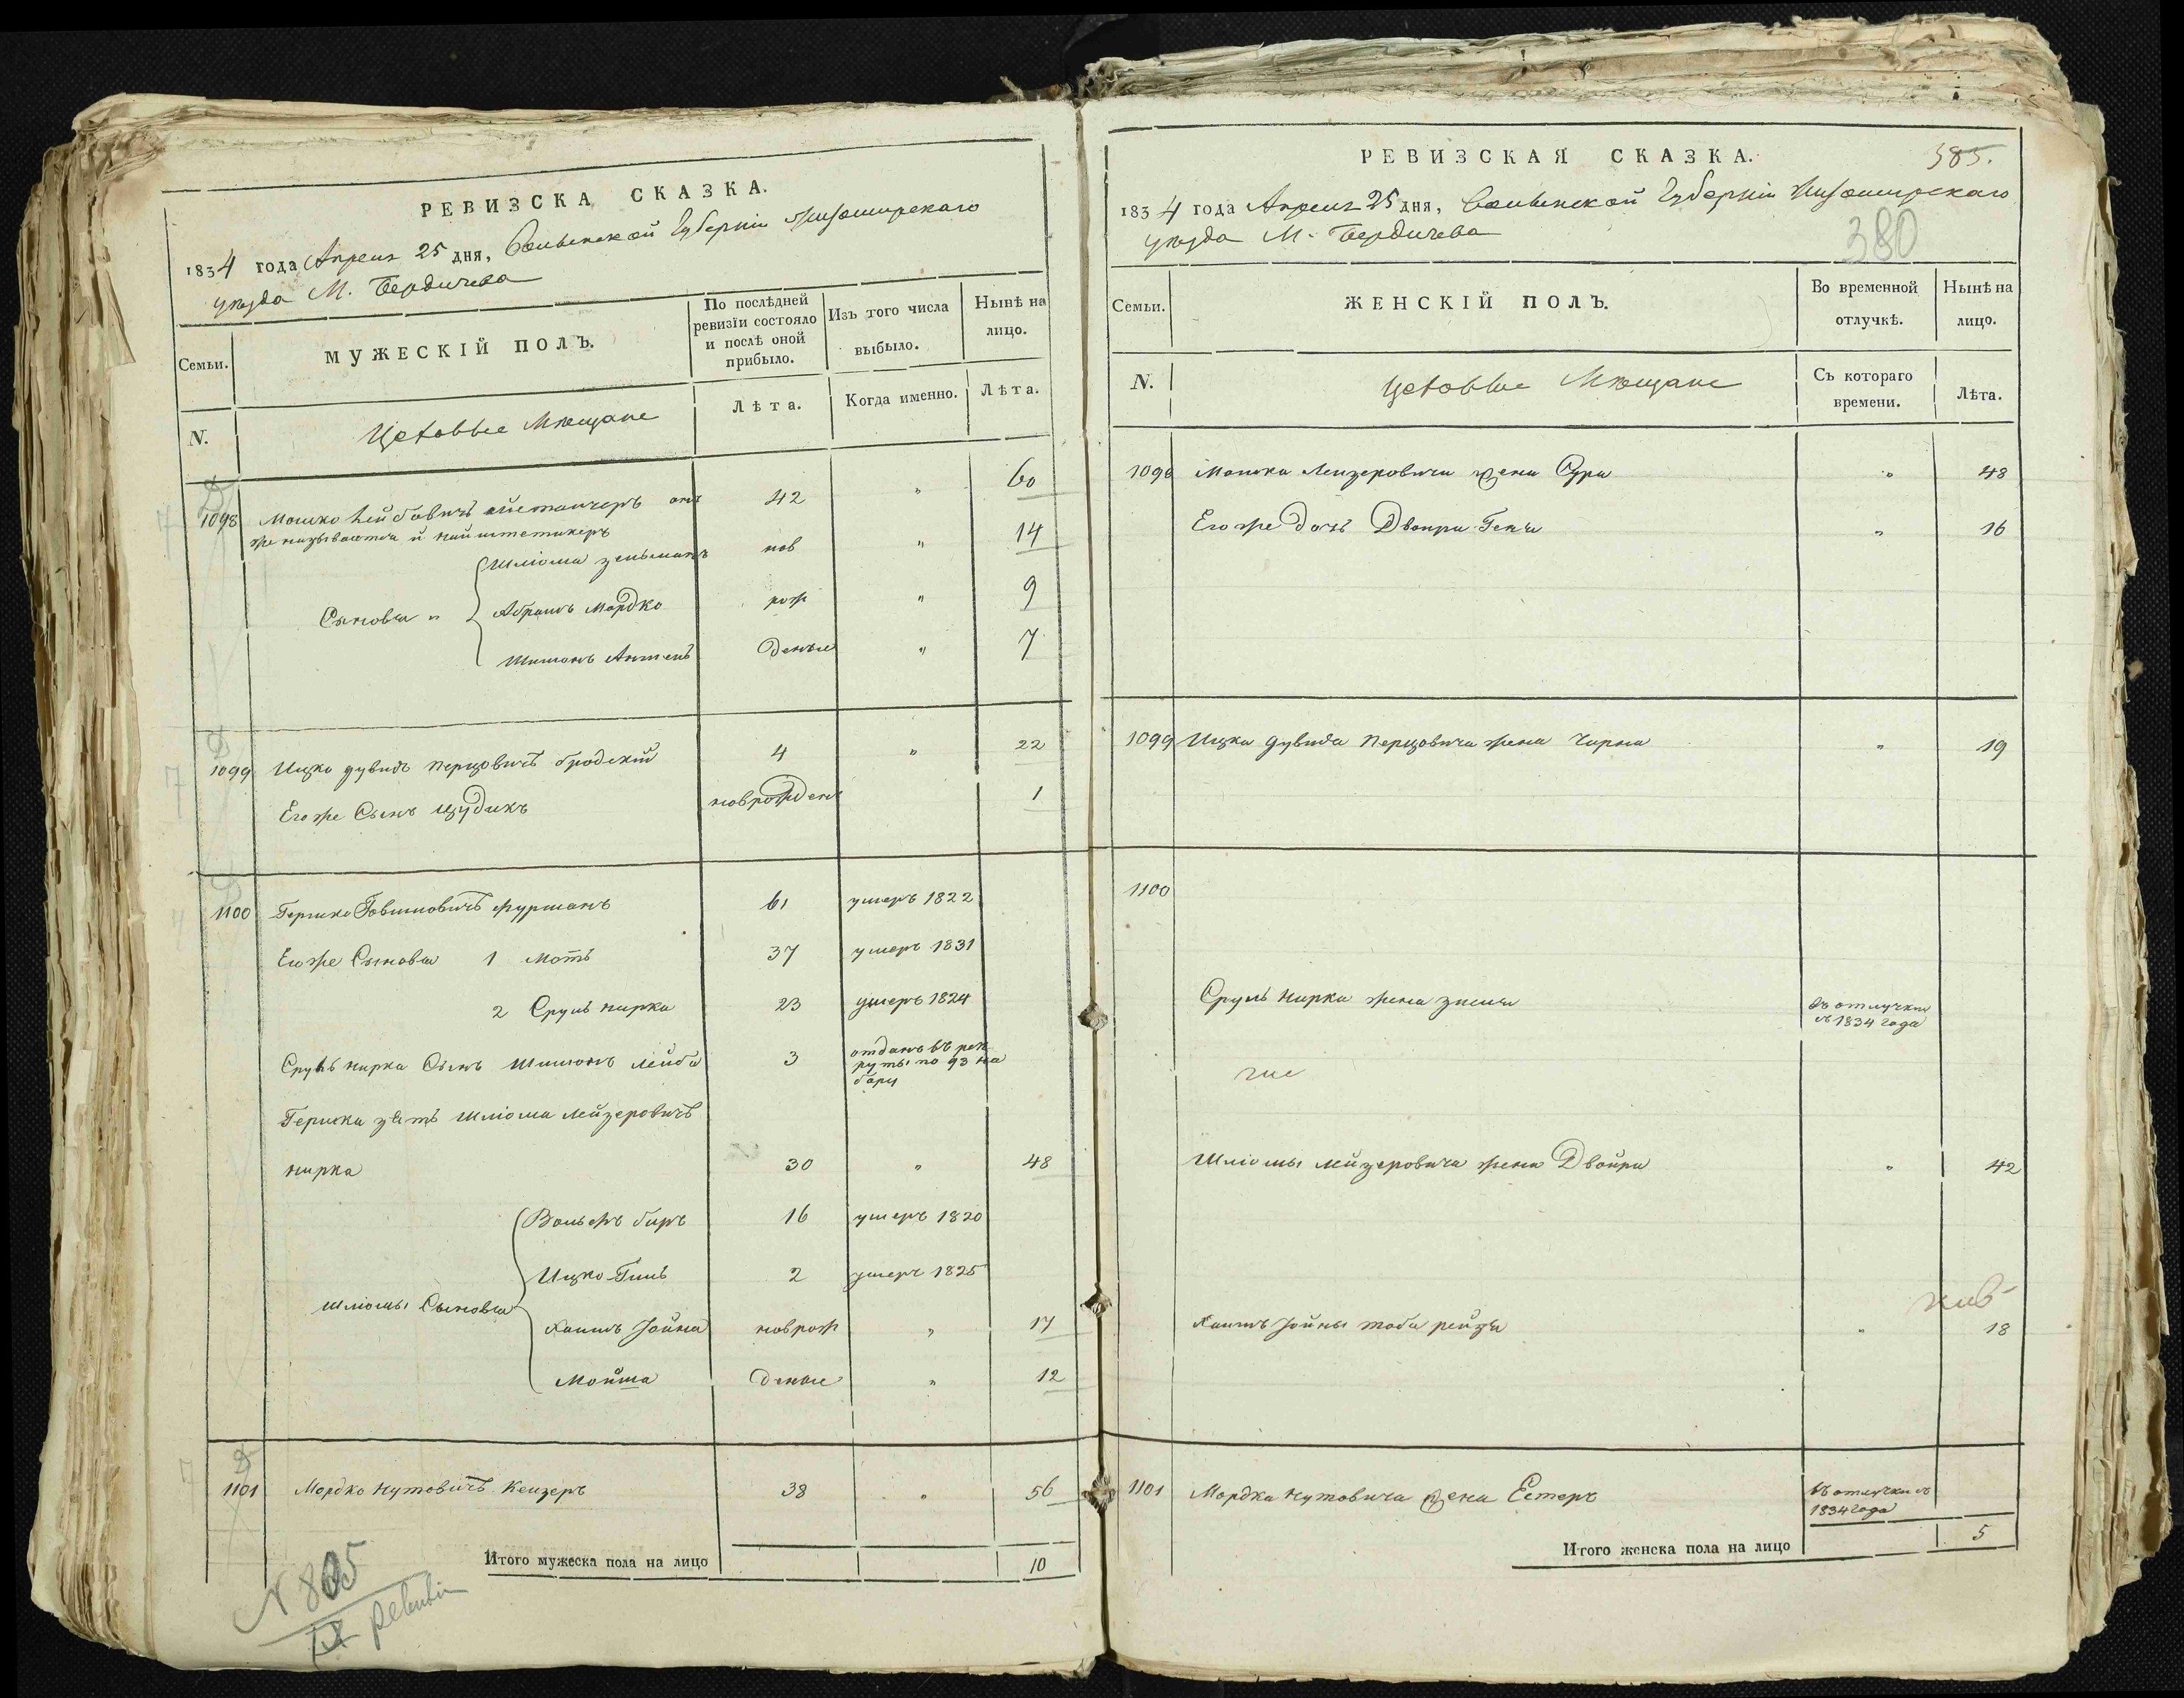 РЕВИЗСКА СКАЗКА.
1834 года Апреля 25 дня, Волынской Губернии Житомирскаго
уезда М. Бердичева
Семьи.
МУЖЕСКІЙ ПОЛЪ.
По послѣдней
ревизіи состояло
и послѣ оной
прибыло.
Изъ того числа
выбыло.
Нынѣ на
лицо.
N.
Цеховые Мѣщане
Лѣта.
Когда именно.
Лѣта.
1098 Мошко Лейбовичъ онъ 42 " 60
же называется и
Шліома Зельманъ нов " 14
Сыновья " Абрамъ Мордко рож " 9
Шимонъ Аншель деные " 7
1099 Ицко Дувидъ Перцовичъ Бродскій 4 " 22
Его же Сынъ Иудикъ новрожден 1
1100 Гершко Фурманъ 61 умеръ 1822
Его же Сыновья 1 Моть 37 умеръ 1831
2 Сруль Кирка 23 умеръ 1824
Сруль Кирка Сынъ Шимонъ Лейба 3 отданъ въ рек
руты по 93 на
бору
Гершка зять Шліома Лейзеровичъ
Кирка 30 " 48
Вольфъ Беръ 16 умеръ 1820
Ицко 2 умеръ 1825
Шліомы Сыновья
Хаимъ Іойна новрож " 17
Мойша деные " 12
1101 Мордко Нутовичъ Кейзеръ 38 " 56
Итого мужеска пола на лицо 10
N 805
IX
РЕВИЗСКАЯ СКАЗКА.
385.
1834 года Апреля 25 дня, Волынской Губернии Житомирскаго
уезда М. Бердичева
380
Семьи.
ЖЕНСКІЙ ПОЛЪ.
Во временной
отлучкѣ.
Нынѣ на
лицо.
N.
Цеховые Мѣщане
Съ котораго
времени.
Лѣта.
1098 Мошка Лейзеровича жена Сура " 48
Его же дочь Двойра Геня " 16
1099 Ицка Дувида Перцовича жена Чарна " 19
1100
Сруль Кирка жена Зисля въ отлучки
съ 1834 года
Шліомы Лейзеровича жена Двойра " 42
Хаимъ Іойны Тоба Рейзя " 18
1101 Мордка Нутовича жена Естеръ въ отлучки съ
1834 года
Итого женска пола на лицо 5